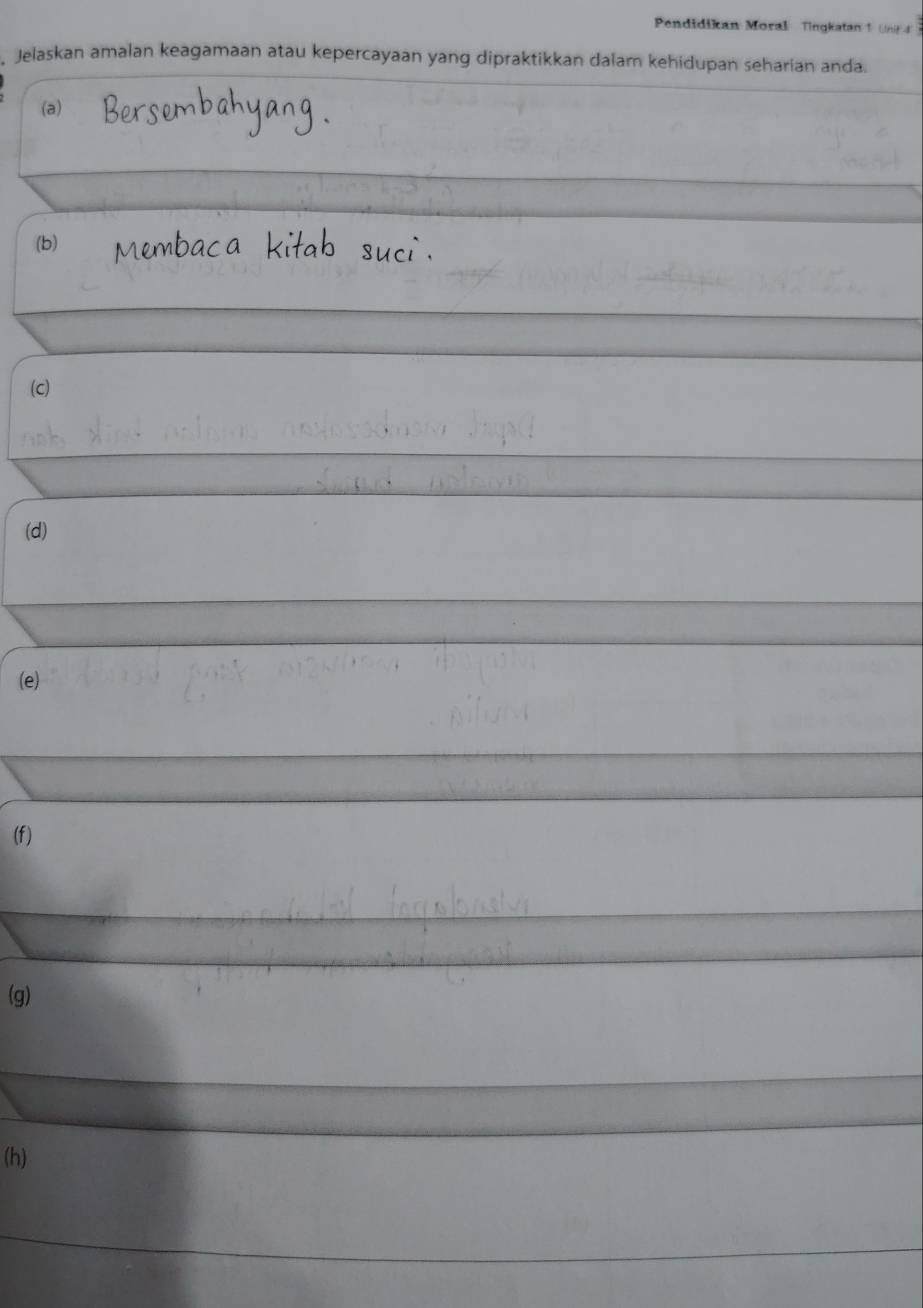 Pendidikan Moral Tingkatan 1 Unit 4
Jelaskan amalan keagamaan atau kepercayaan yang dipraktikkan dalam kehidupan seharian anda.
(a) Bersembahyang.
(b) Membaca kitab suci.
(c)
(d)
(e)
(f)
(g)
(h)